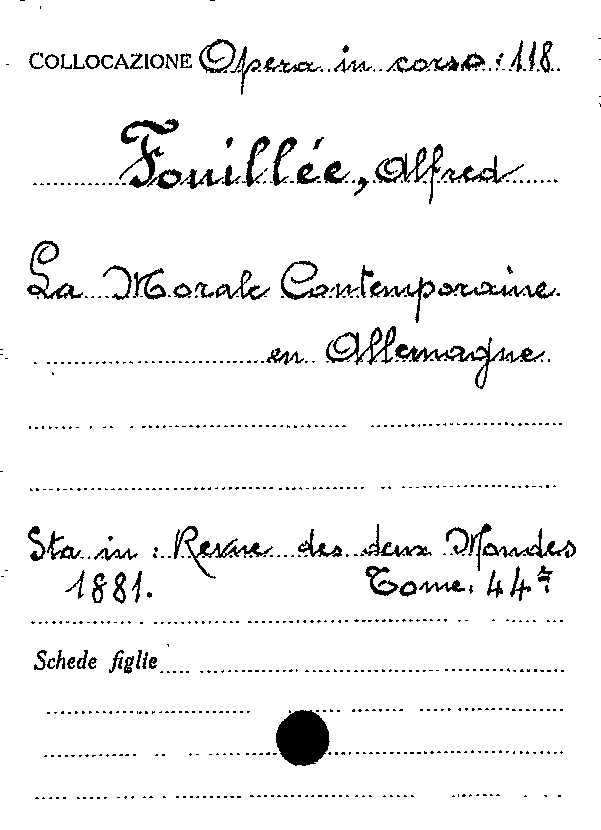 COLLOCAZIONE Opera in corso: 118
Fouillée, Alfred
La Morale Contemporaine
en Allemagne
Sta in: Revue des deux Mondes
1881. Tome. 44.
Schede figlie